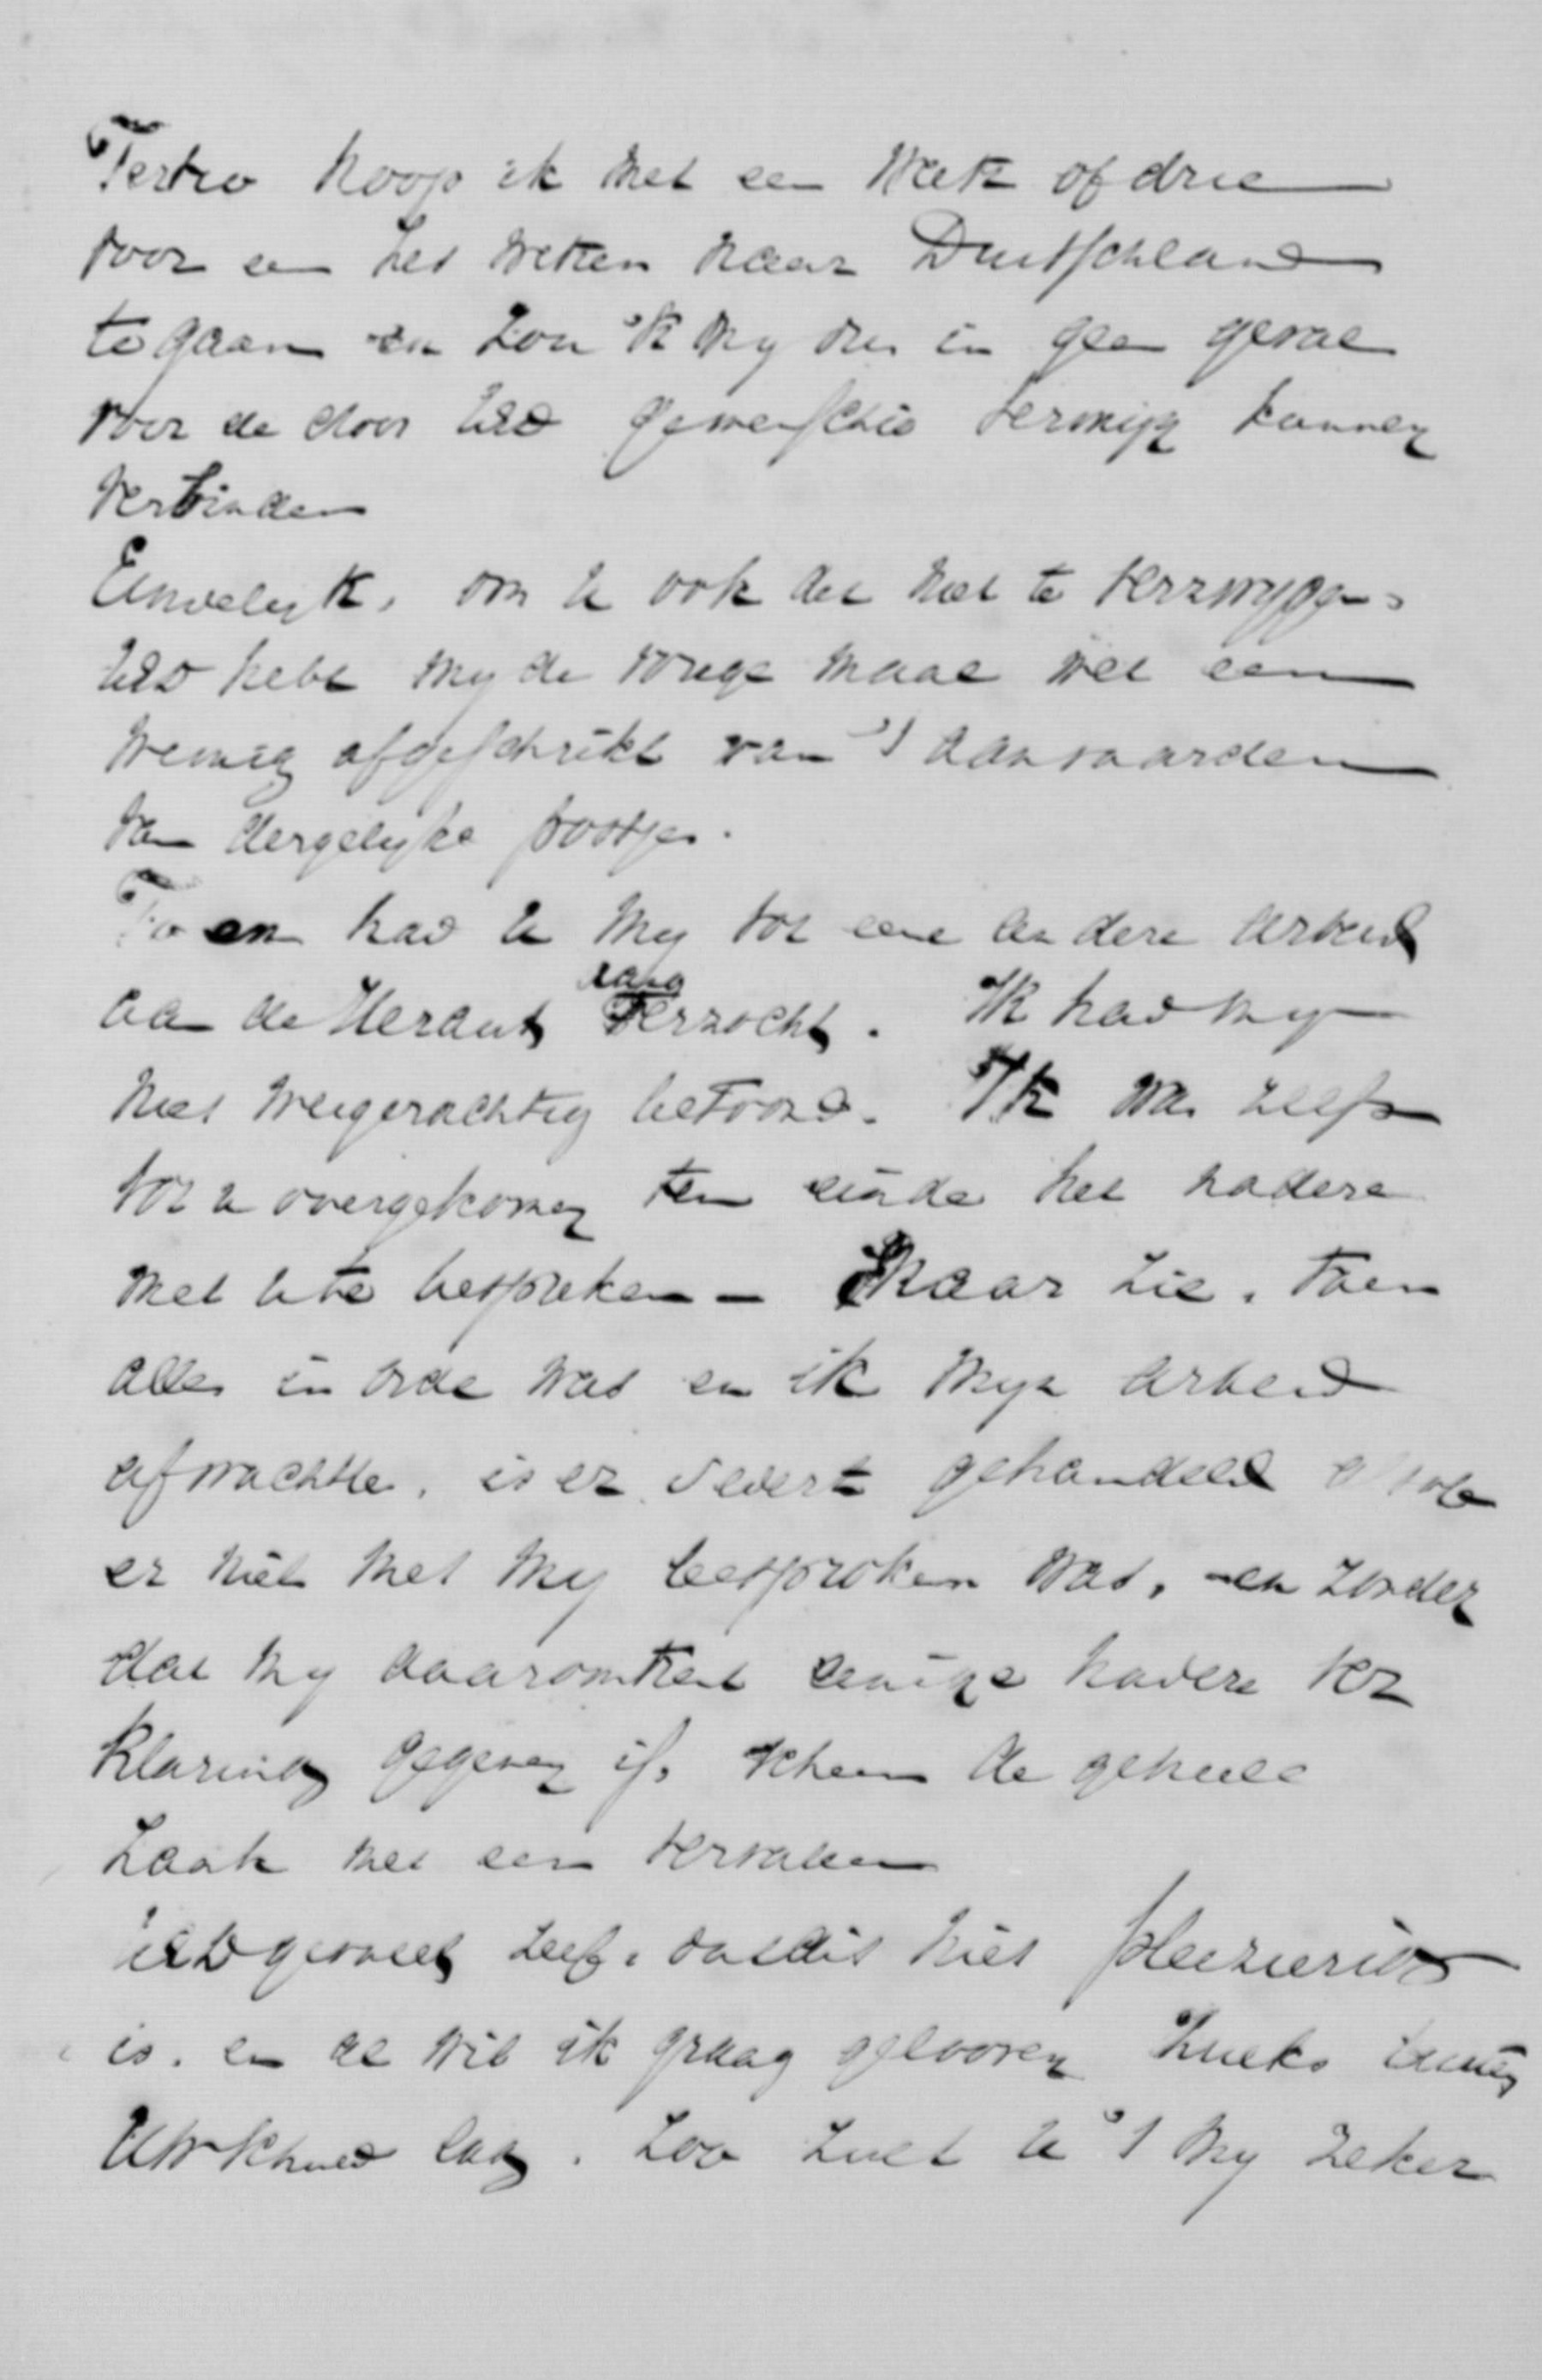 Tertio hoop ik met een week of drie
voor een zes weken naar Duitschland
te gaan en zou ik my dus in geen geval
voor de door UEd gewenschte termijn kunnen
verbinden
Eindelyk, om U ook dit niet te verzwygen,
UEd hebt my de vorige maal wel een
weinig afgeschrikt van 't aanvaarden
van dergelyke postjes.
Toen had U my tot eene andere arbeid
aan de Heraut verzocht. Ik had my
niet weigerachtig betoond. Ik was zelfs
tot U overgekomen ten einde het nadere
met U te bespreken — Maar zie, toen
alles in orde was en ik myn arbeid
afwachtte, is er gehandeld alsof
er niet met my besproken was, en zonder
dat my daaromtrent eenige nadere ver
klaring gegeven is, scheen de geheele
zaak met een vervallen
UEd gevoelt zelf, dat dit niet pleizierig
is, en al wil ik graag gelooven zulks buiten
Uw schuld lag, zoo zult U 't my zeker